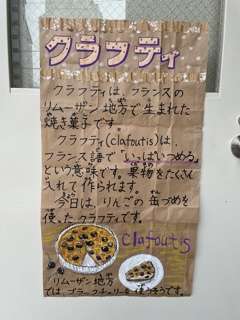 クラフティ
クラフティは、フランスの
リムーザン地方で生まれた
焼き菓子です。
クラフティ(clafoutis)は、
フランス語で「いっぱいつめる」
という意味です。果物をたくさん
入れて作られます。
今日は、りんごの缶づめを
使ったクラフティです。
clafoutis
リムーザン地方
では、ブラックチェリーを使うそうです。